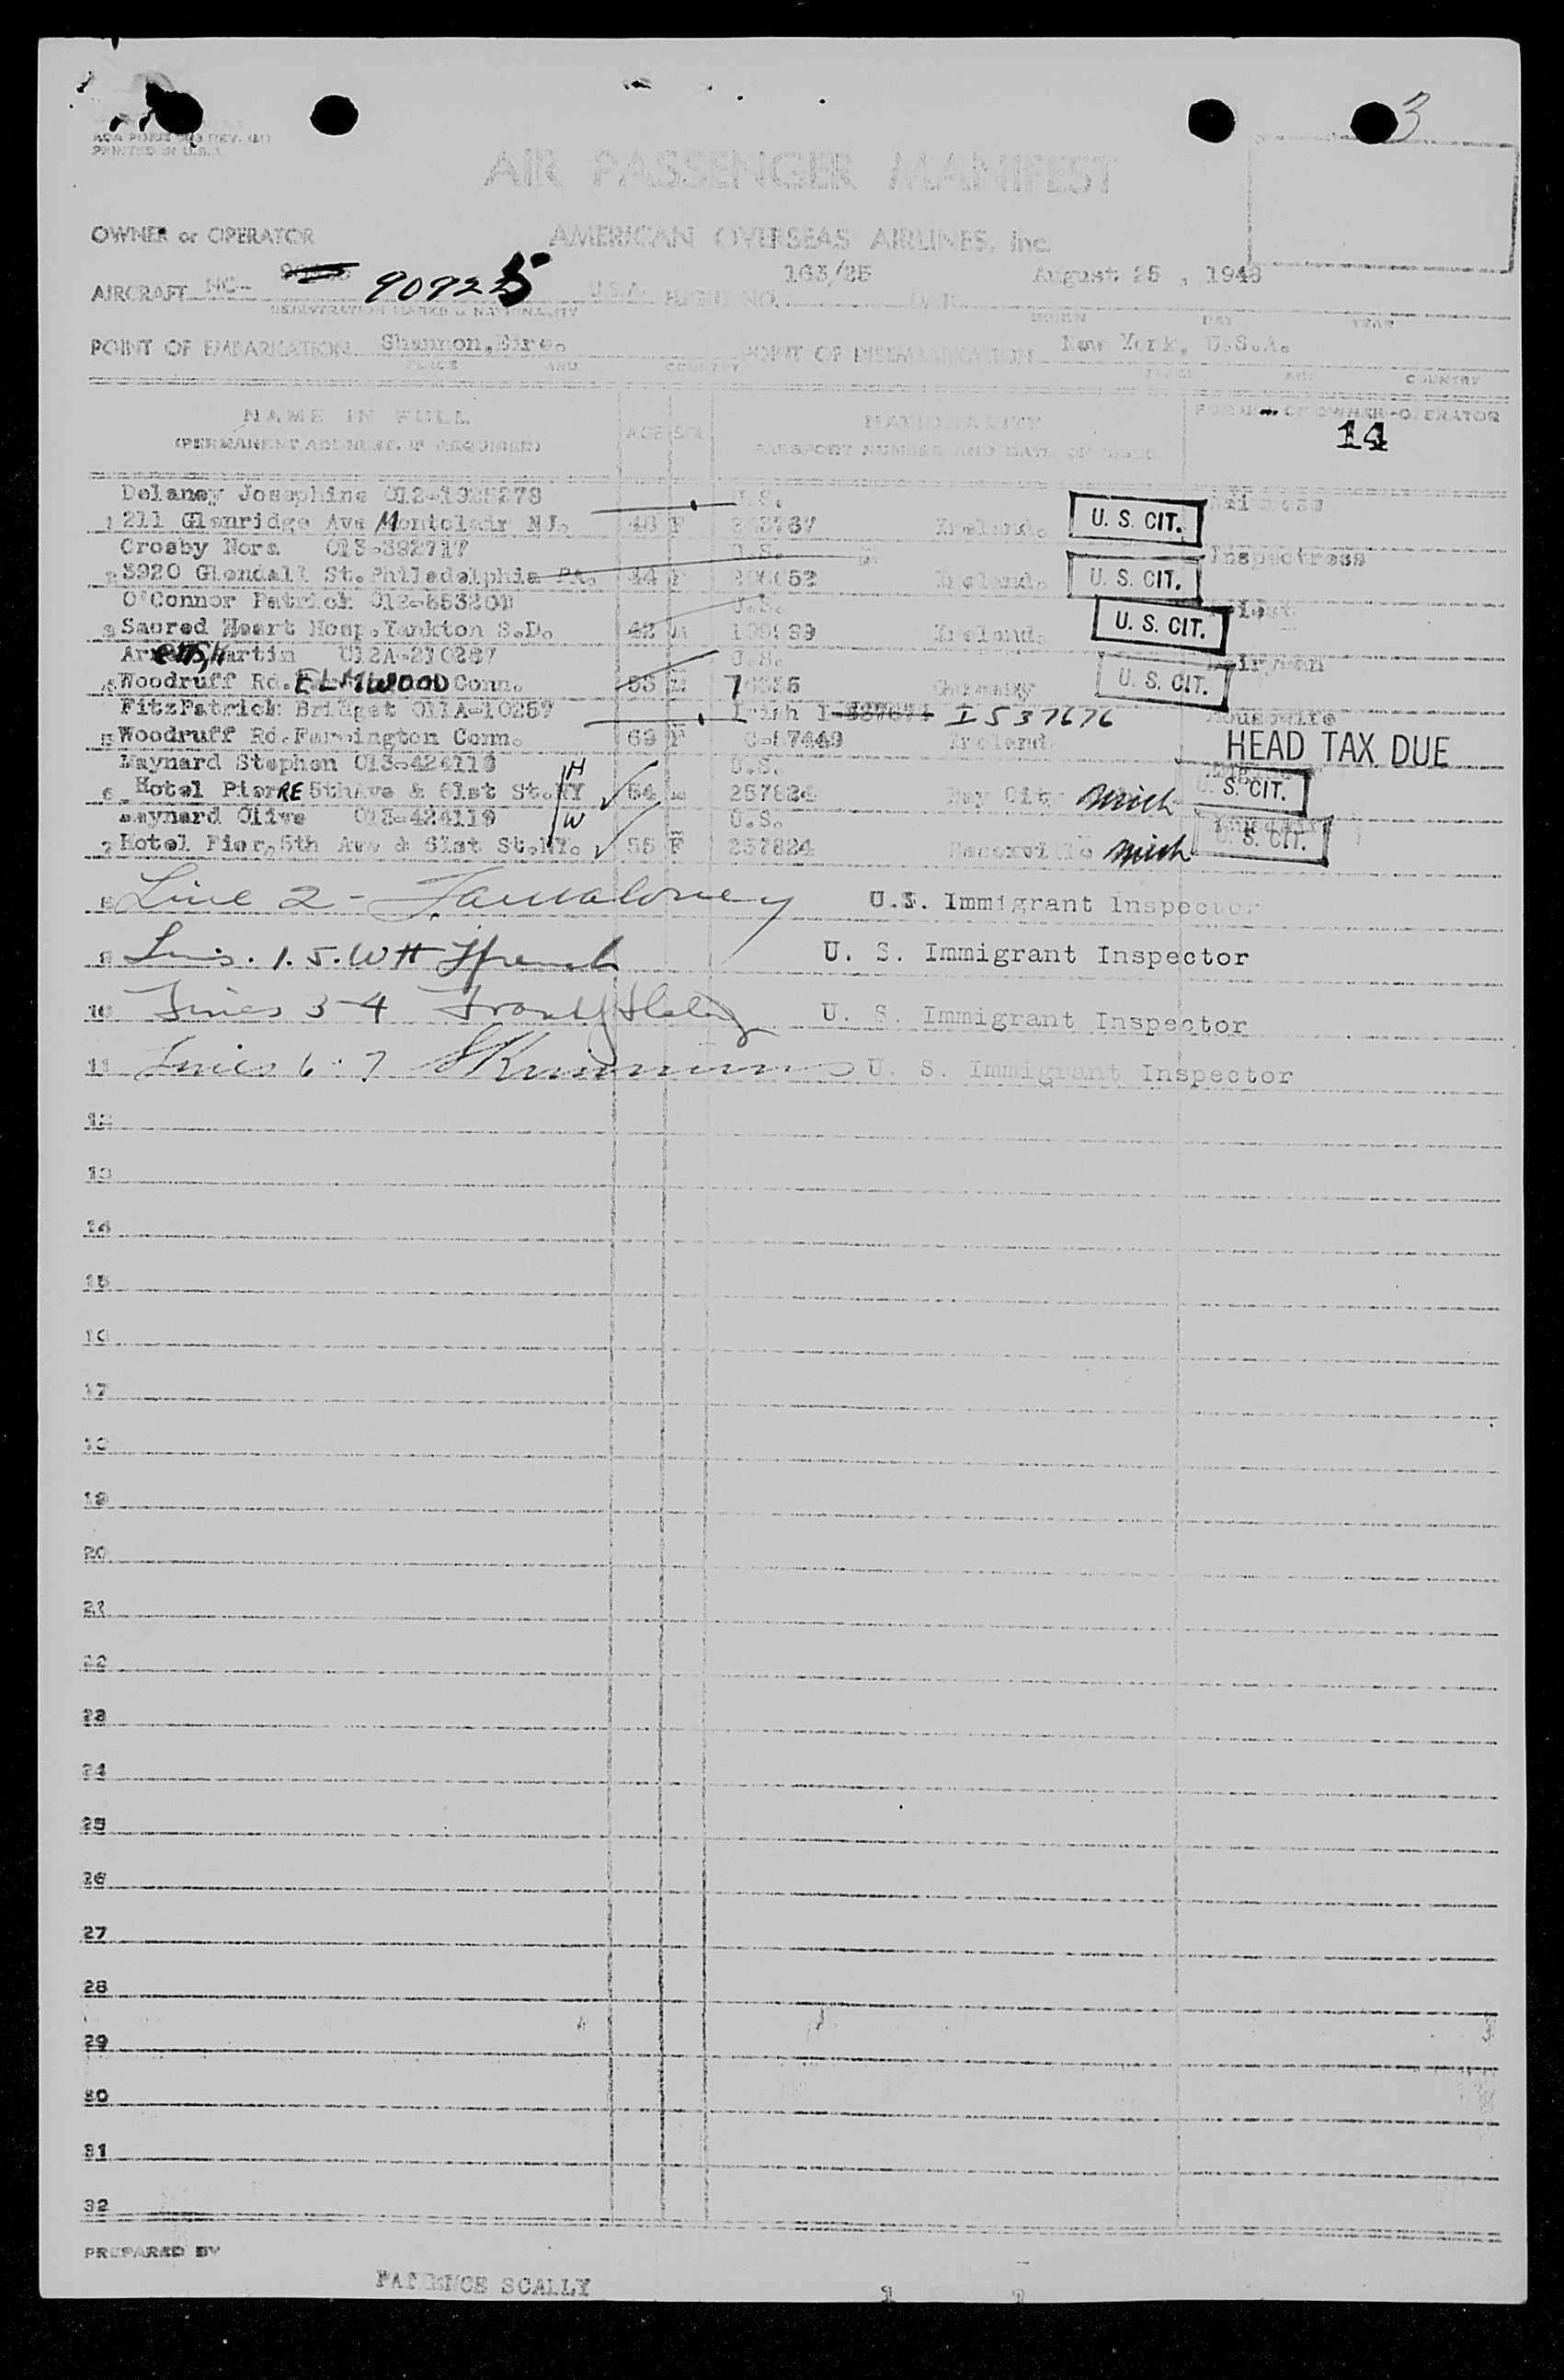 3
PRINTED IN U.S.A.
AIR PASSENGER MANIFEST
OWNER or OPERATOR AMERICAN OVERSEAS AIRLINES, Inc.
AIRCRAFT NC- 90925 U.S.A. FLIGHT NO. 163/25 DATE August 25, 1948
REGISTRATION MARKS & NATIONALITY MONTH DAY YEAR
POINT OF EMBARKATION Shannon, Eire. POINT OF DISEMBARKATION New York, U.S.A.
PLACE AND COUNTRY PLACE AND COUNTRY
NAME IN FULL AGE SEX NATIONALITY FOR USE OF OWNER-OPERATOR
(PERMANENT ADDRESS, IF REQUIRED) PASSPORT NUMBER AND DATE OF ISSUE 14
Delaney Josephine U.S.
1 211 Glenridge Ave Montclair NJ. 48 F Ireland. U. S. CIT.
Crosby Nora 013-392717 U.S. Inspectress
2 5920 Glendall St. Philadelphia PA. 44 F Ireland. U. S. CIT.
O'Connor Patrick U.S. Priest
3 Sacred Heart Hosp. Yankton S.D. 42 M Ireland. U. S. CIT.
Martin 012A-210267 U.S.
4 Woodruff Rd. ELMWOOD Conn. 53 M Germany U. S. CIT.
FitzPatrick Bridget 011A-10257 Irish I537676 Housewife
5 Woodruff Rd. Farmington Conn. 69 F Ireland. HEAD TAX DUE
Maynard Stephen 013-424119 H U.S.
6 Hotel PierRE 5th Ave & 61st St. NY 54 M 257824 Bay City Mich U. S. CIT.
Maynard Olive 013-424119 W U.S.
7 Hotel Pier, 5th Ave & 61st St. NY. 55 F 257824 Mich U. S. CIT.
8 Line 2 - U.S. Immigrant Inspector
9 Lins. 1. 5. U. S. Immigrant Inspector
10 Lines 3-4 U. S. Immigrant Inspector
11 Lines 6-7 U. S. Immigrant Inspector
12
13
14
15
16
17
18
19
20
21
22
23
24
25
26
27
28
29
30
31
32
PREPARED BY
PATIENCE SCALLY